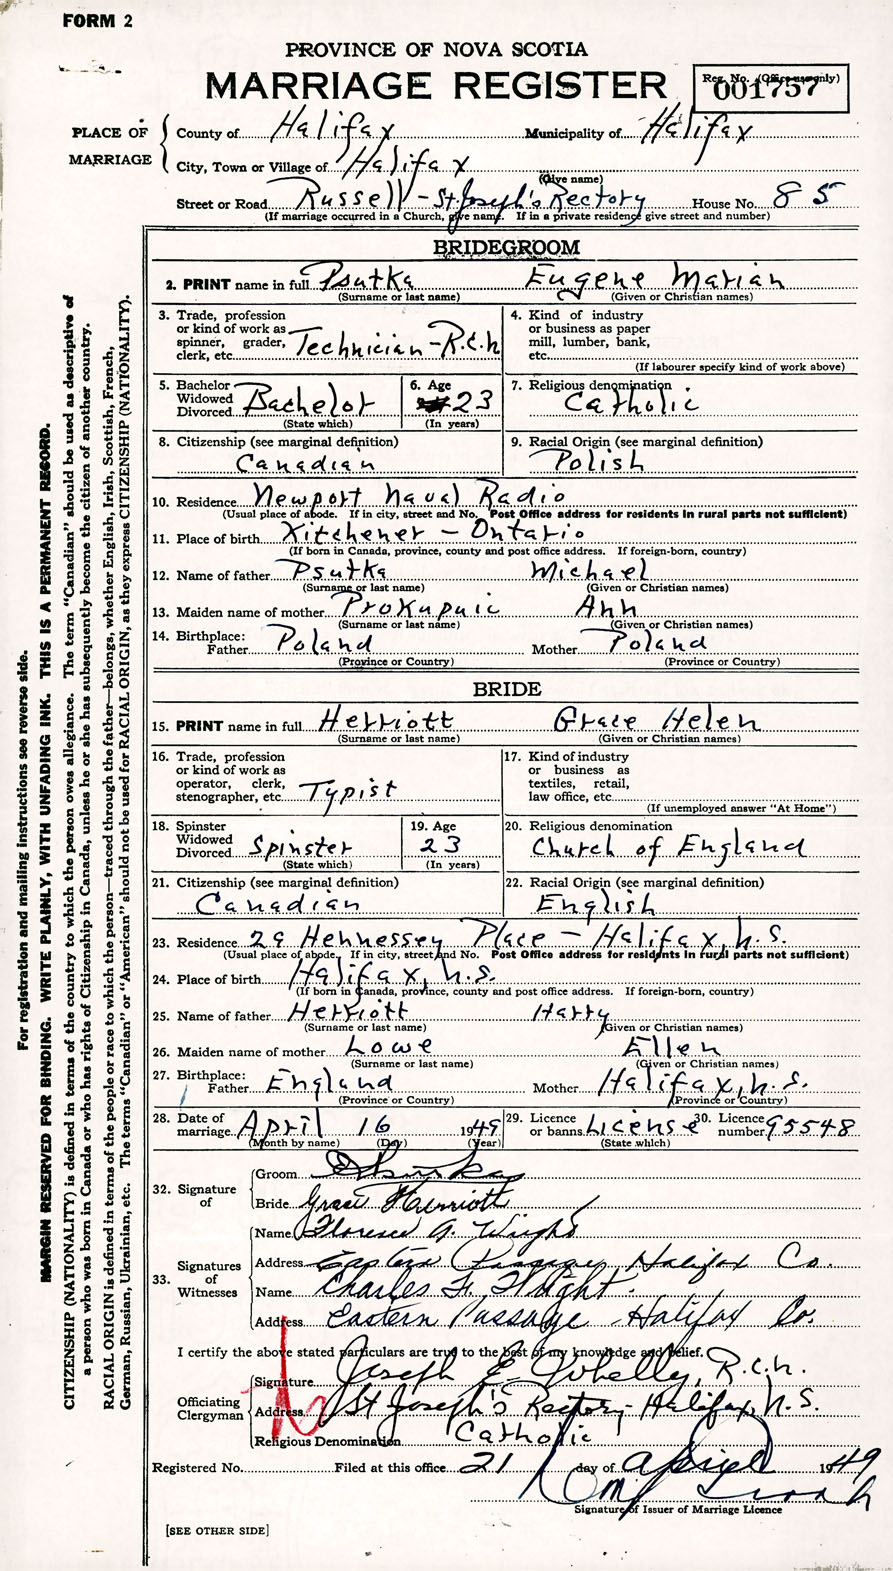 FORM 2
PROVINCE OF NOVA SCOTIA
MARRIAGE REGISTER
Reg. No. (Office use only)
001757
PLACE OF MARRIAGE
County of Halifax Municipality of Halifax
City, Town or Village of Halifax
(Give name)
Street or Road Russell - St. Joseph's Rectory House No. 85
(If marriage occurred in a Church, give name. If in a private residence give street and number)
BRIDEGROOM
2. PRINT name in full Psutka Eugene Marian
(Surname or last name) (Given or Christian names)
3. Trade, profession or kind of work as spinner, grader, clerk, etc. Technician - R.C.N
4. Kind of industry or business as paper mill, lumber, bank, etc.
(If labourer specify kind of work above)
5. Bachelor Widowed Divorced Bachelor
(State which)
6. Age 23
(In years)
7. Religious denomination
Catholic
8. Citizenship (see marginal definition)
Canadian
9. Racial Origin (see marginal definition)
Polish
10. Residence Newport Naval Radio
(Usual place of abode. If in city, street and No. Post Office address for residents in rural parts not sufficient)
11. Place of birth Kitchener - Ontario
(If born in Canada, province, county and post office address. If foreign-born, country)
12. Name of father Psutka Michael
(Surname or last name) (Given or Christian names)
13. Maiden name of mother Prokupuic Ann
(Surname or last name) (Given or Christian names)
14. Birthplace:
Father Poland Mother Poland
(Province or Country) (Province or Country)
BRIDE
15. PRINT name in full Herriott Grace Helen
(Surname or last name) (Given or Christian names)
16. Trade, profession or kind of work as operator, clerk, stenographer, etc. Typist
17. Kind of industry or business as textiles, retail, law office, etc.
(If unemployed answer "At Home")
18. Spinster Widowed Divorced Spinster
(State which)
19. Age
23
(In years)
20. Religious denomination
Church of England
21. Citizenship (see marginal definition)
Canadian
22. Racial Origin (see marginal definition)
English
23. Residence 29 Hennessey Place - Halifax, N.S.
(Usual place of abode. If in city, street and No. Post Office address for residents in rural parts not sufficient)
24. Place of birth Halifax, N.S.
(If born in Canada, province, county and post office address. If foreign-born, country)
25. Name of father Herriott Harry
(Surname or last name) (Given or Christian names)
26. Maiden name of mother Lowe Ellen
(Surname or last name) (Given or Christian names)
27. Birthplace:
Father England Mother Halifax, N.S.
(Province or Country) (Province or Country)
28. Date of marriage April 16 1949
(Month by name) (Day) (Year)
29. Licence or banns License
(State which)
30. Licence number 95548
32. Signature of
Groom
Bride Grace Herriott
33. Signatures of Witnesses
Name Florence A. Wright
Address Eastern Passage, Halifax Co.
Name Charles F. Wright.
Address Eastern Passage Halifax Co.
I certify the above stated particulars are true to the best of my knowledge and belief.
Officiating Clergyman
Signature Joseph E. Whelly, R.C.N.
Address St Joseph's Rectory - Halifax, N.S.
Religious Denomination Catholic
Registered No. Filed at this office 21 day of April 1949
Signature of Issuer of Marriage Licence
[SEE OTHER SIDE]
For registration and mailing instructions see reverse side.
MARGIN RESERVED FOR BINDING. WRITE PLAINLY, WITH UNFADING INK. THIS IS A PERMANENT RECORD.
CITIZENSHIP (NATIONALITY) is defined in terms of the country to which the person owes allegiance. The term "Canadian" should be used as descriptive of
a person who was born in Canada or who has rights of Citizenship in Canada, unless he or she has subsequently become the citizen of another country.
RACIAL ORIGIN is defined in terms of the people or race to which the person—traced through the father—belongs, whether English, Irish, Scottish, French,
German, Russian, Ukrainian, etc. The terms "Canadian" or "American" should not be used for RACIAL ORIGIN, as they express CITIZENSHIP (NATIONALITY).